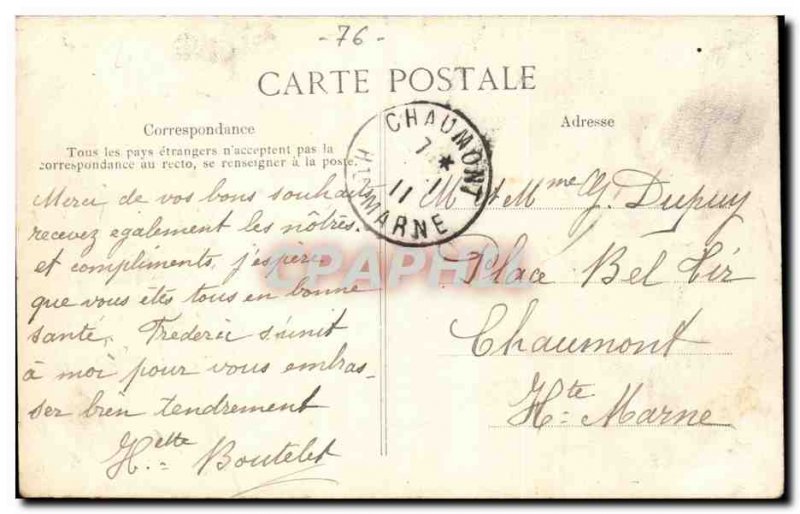 -76-
CARTE POSTALE
Correspondance
Tous les pays étrangers n'acceptent pas la
correspondance au recto, se renseigner à la poste.
Merci de vos bons souhaits
recevez également les nôtres.
et compliments, j'espère
que vous êtes tous en bonne
santé, Frederic s'unit
à moi pour vous embras-
ser bien tendrement
Hette Boutelet
CHAUMONT
7 *
11
HTE MARNE
Adresse
M et Mme G. Dupuy
Place Bel Air
Chaumont
Hte Marne
CPAPHIL